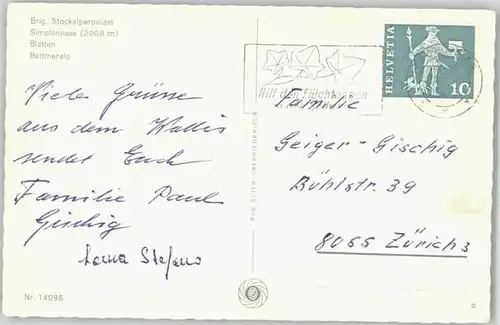 Brig, Stockalperpalast
Simplonpass (2008 m)
Blatten
Bettmeralp
Viele Grüsse
aus dem Wallis
sendet Euch
Familie Paul
Gischig
Stefans
Nr. 14095
Hilf den Flüchtlingen
HELVETIA
10
Familie
Geiger-Gischig
Bühlstr. 39
8055 Zürich 3